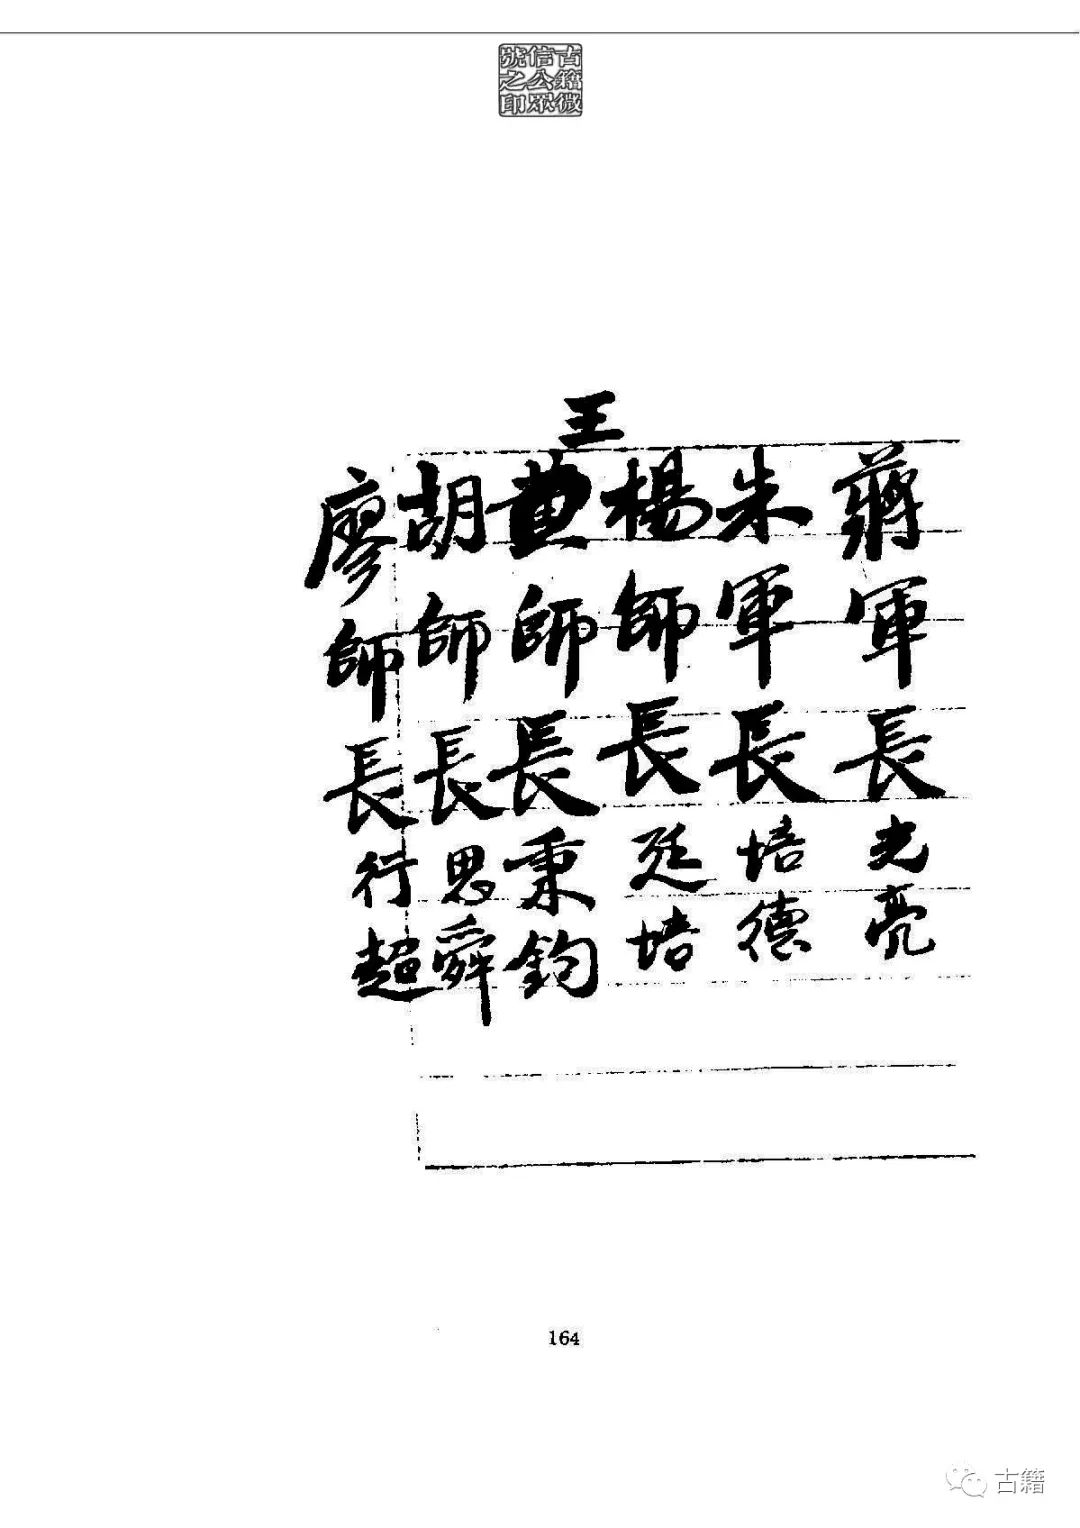 古籍微
信公眾
號之印
蔣軍長光亮
朱軍長培德
楊師長廷培
王
黃師長秉鈞
胡師長思舜
廖師長行超
164
古籍